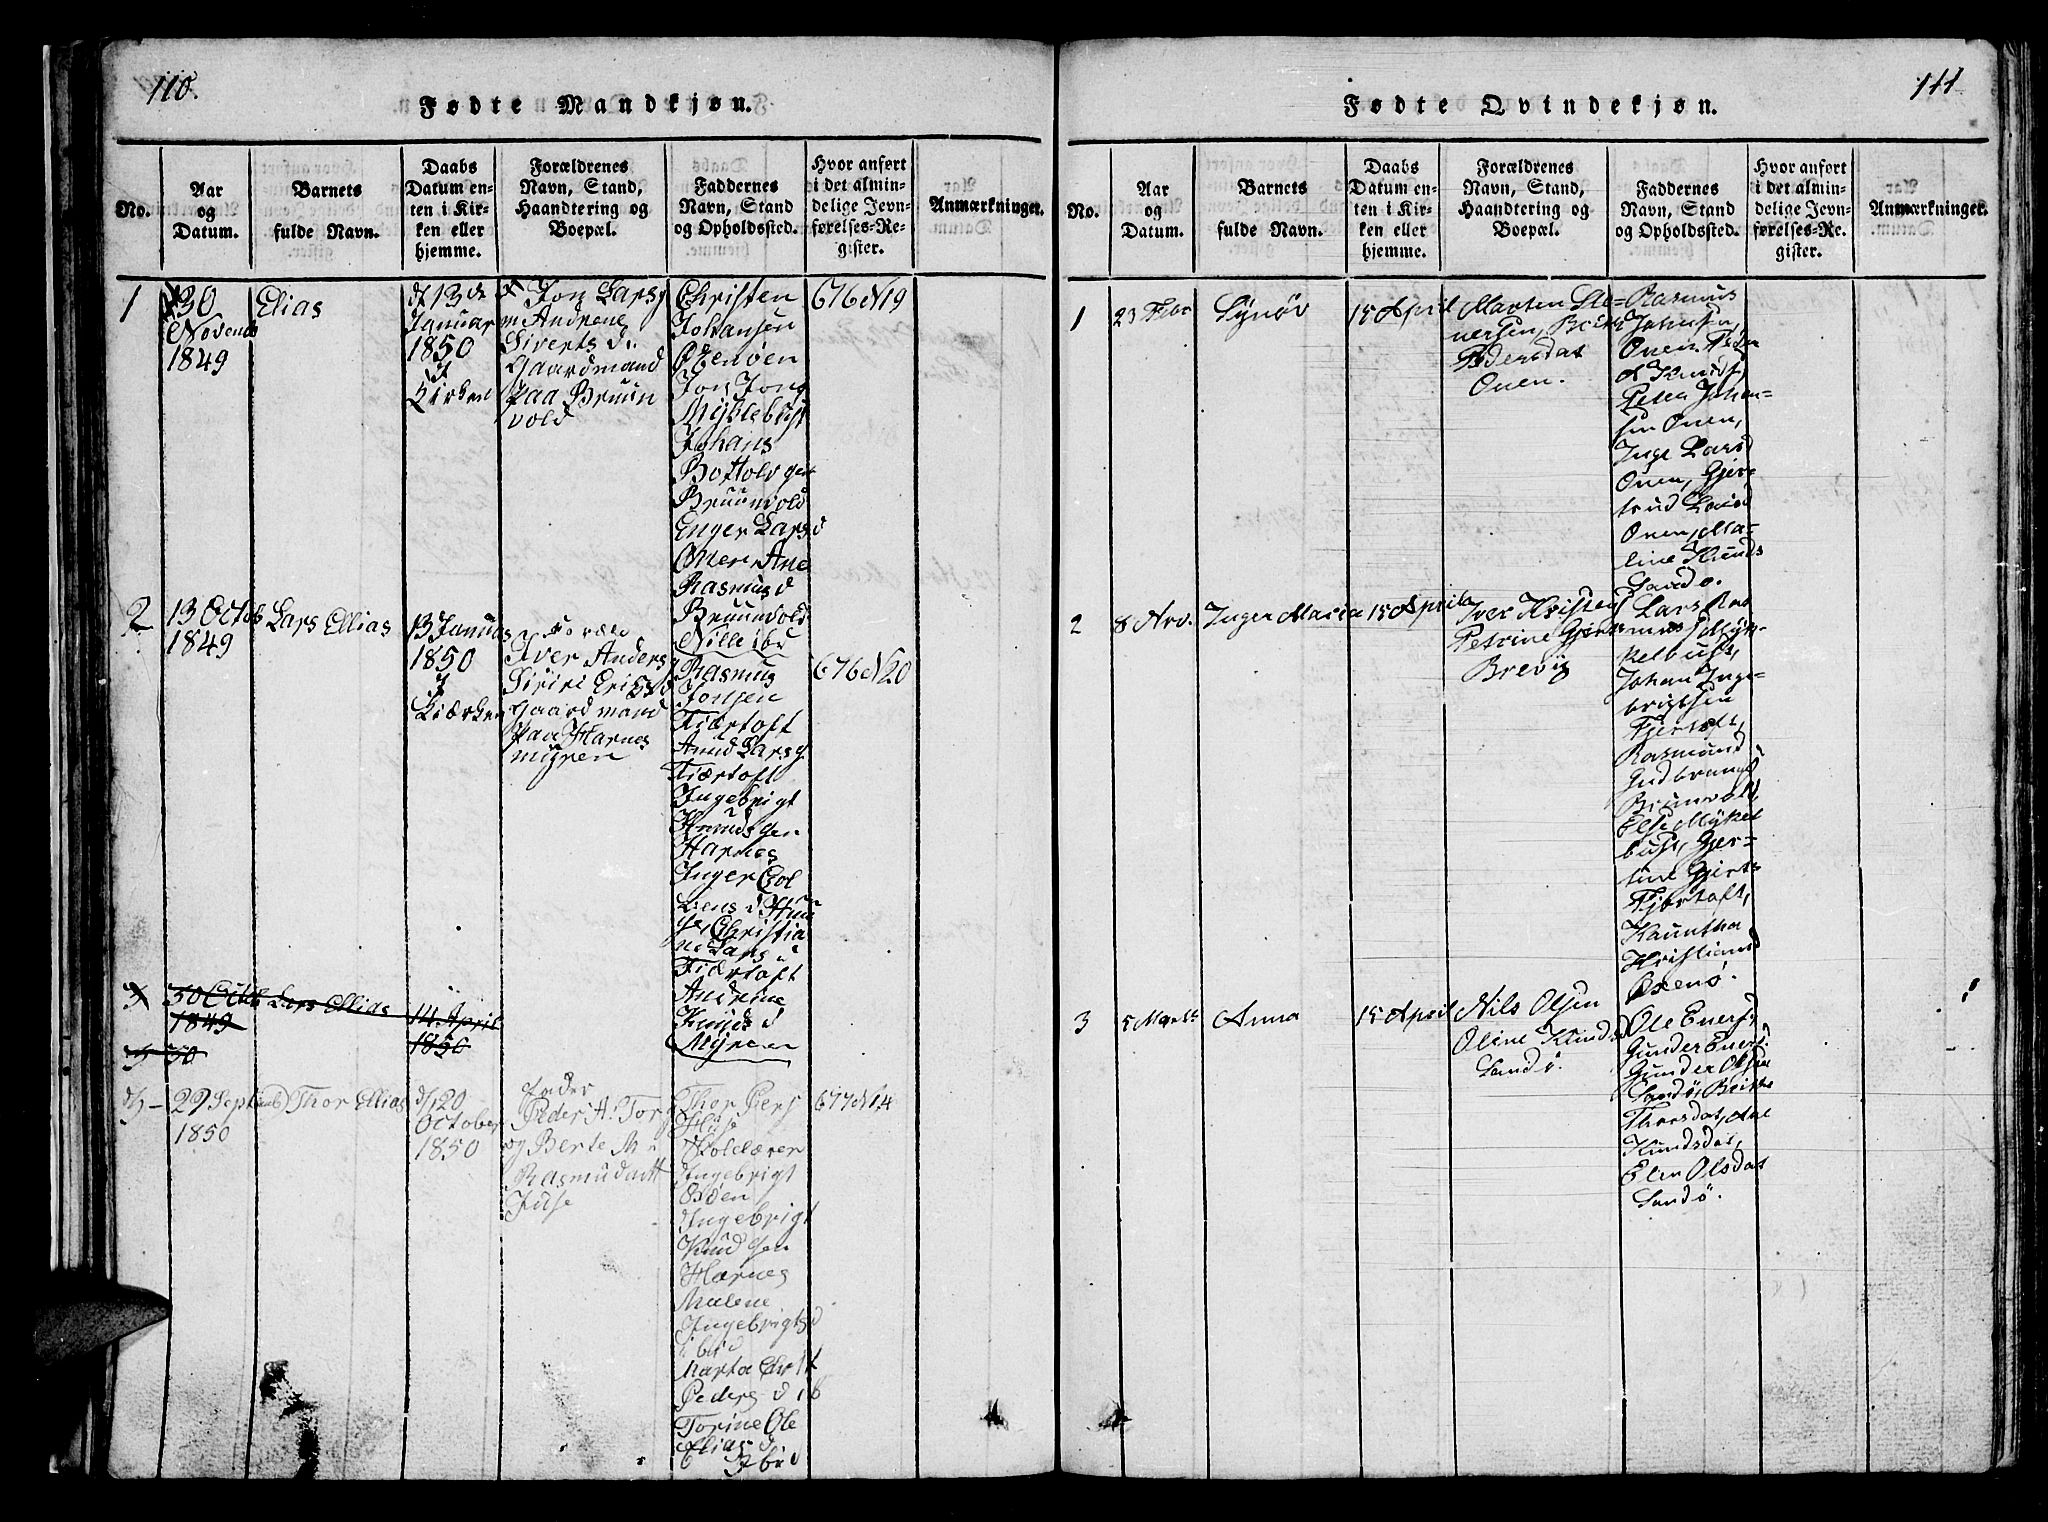 110.
Fødte Mandkjøn.
No.
Aar
og
Datum.
Barnets
fulde Navn.
Daabs
Datum en-
ten i Kir-
ken eller
hjemme.
Forældrenes
Navn, Stand,
Haandtering og
Boepæl.
Faddernes
Navn, Stand
og Opholdssted.
Hvor anført
i det almin-
delige Jevn-
førelses-Re-
gister.
Anmærkninger.
1
30
Novemb
1849
Elias
d 13 de
Januar
1850
I
Kirken
Jon Lars
Andrene
Siverts d
Gaardmand
paa Bruun
vold
Christen
Johansen
Oxenøen
Jon Jons
Myklebust
Johans
Bottolv
Bruunvold
Enger Lars d
Ane
Rasmus d
Bruunvold
676 N 19
2
13 Octob
1849
Lars Ellias
13 Januar
1850
I
Kiærken
Iver Anders
Siriri Eriks d
Gaardmand
paa Harnes
myren
Rasmus
Jonsen
Fiærtoft
Knud Lars
Fiærtoft
Ingebrigt
Knuds sen
Harnes
Inger
Christia
ne Lars d
Fiærtoft
Andrine
Knuds d
Myren
676 N 20
3
30 Octob
1849
Lars Ellias
14 April
1850
3 -
29 Septemb
1850
Thor Ellias
d 20
October
1850
Peder A. Torg
og Berte M
Rasmusdatt
Huse
Thor Pers
Huse
Skolelærer
Ingebrigt
Ingebrigt
Knud Sen
Harnes
Malene
Ingebrigtsd
ibid
Marta
Peders d ib
Torine Ole
Elias d
Ibid
677 N 14
111
Fødte Qvindekjøn.
No.
Aar
og
Datum.
Barnets
fulde Navn.
Daabs
Datum en-
ten i Kir-
ken eller
hjemme.
Forældrenes
Navn, Stand,
Haandtering og
Boepæl.
Faddernes
Navn, Stand
og Opholdssted.
Hvor anført
i det almin-
delige Jevn-
førelses-Re-
gister.
Anmærkninger.
1
23 Febr
Synøv
15 April
Morten Ste-
nersen, Brithe
Pedersdat
Onen.
Rasmus
Johnsen,
Onen, Peder
Knuds
Peter Johan-
sen Onen,
Inge Larsd
Onen, Gjer-
trud Larsd
Onen, Ma-
line Knuds
Sandø.
2
Inger Maria
15 April
Iver Kristens
Petrine Gjerts
Brevig
Lars Ras
mus Myk-
kelbust,
Johan Inge-
brigtsen
Fjertoft,
Rasmund
Gudbrands
Brunvold,
Else Mykel
bust, Gjer-
tine Gjerts
Fjørtoft,
Kristians
Oxenø.
3
5 Marts
Anna
15 April
Nils Olsen
Oline Knuds
Sandø.
Ole Eners,
Gunder Eners.
Gunder Olsen
Sandø, Brithe
Thorsdat, Ane
Knudsdat,
Elen Olsdat
Sandø.